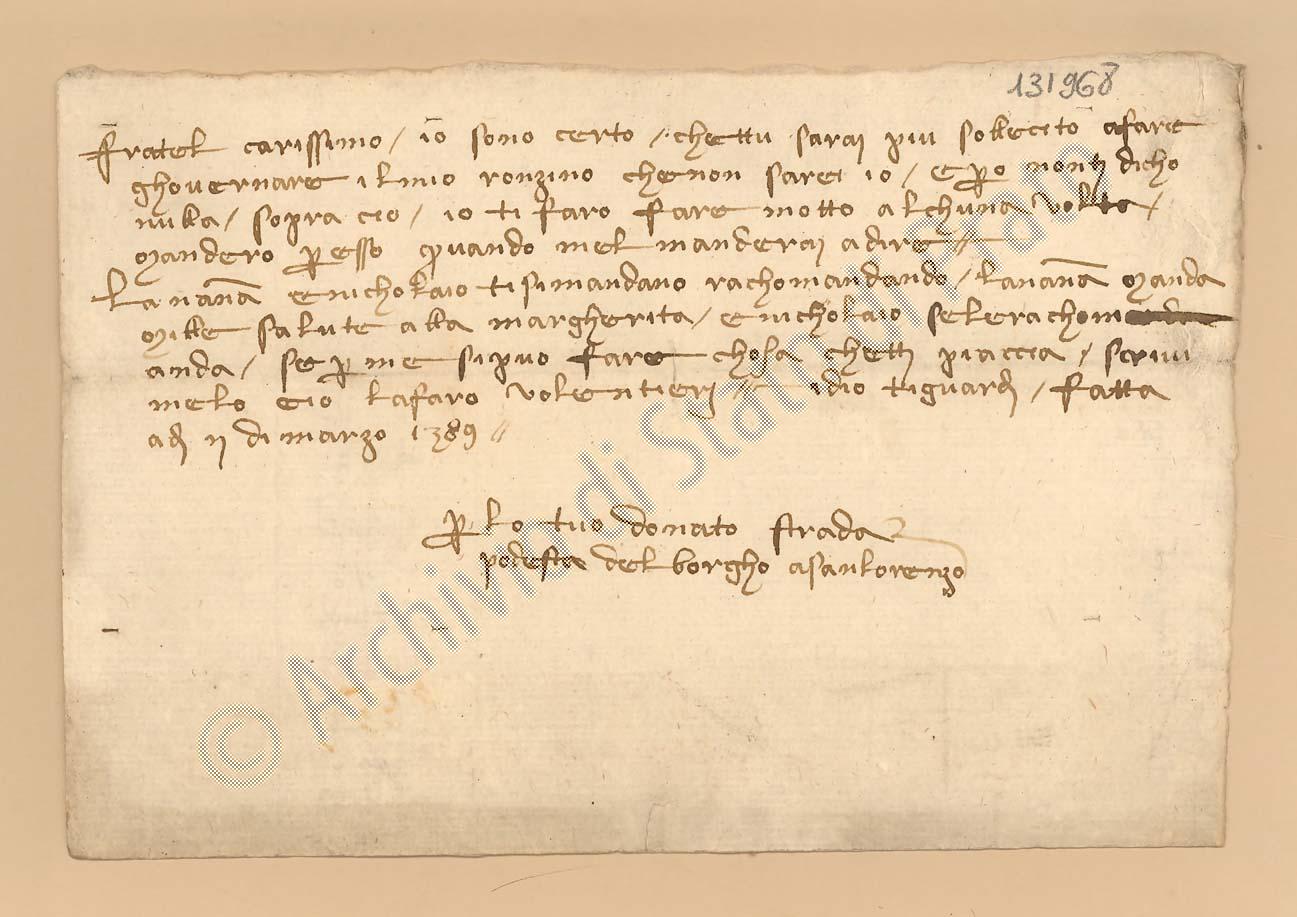 131968
Fratel carissimo / io sono certo / chettu sarai piu sollecito afare
ghovernare ilmio ronzino chenon sarei io / e pero nonti dicho
nulla / sopra cio / io ti faro fare motto alchuna volta /
mandero per esso quando mel manderai adire //
La nanna enicholaio tisimandano rachomandando / Lananna manda
mille salute alla margherita / enicholaio selerachom
anda / se per me sipuo fare chosa chetti piaccia / scrivi
melo eio lafaro volentieri // idio tiguardi / fatta
adi 11 di marzo 1389 //
per lo tuo donato strada
podesta del borgho asanlorenzo
© Archivio di Stato di Prato